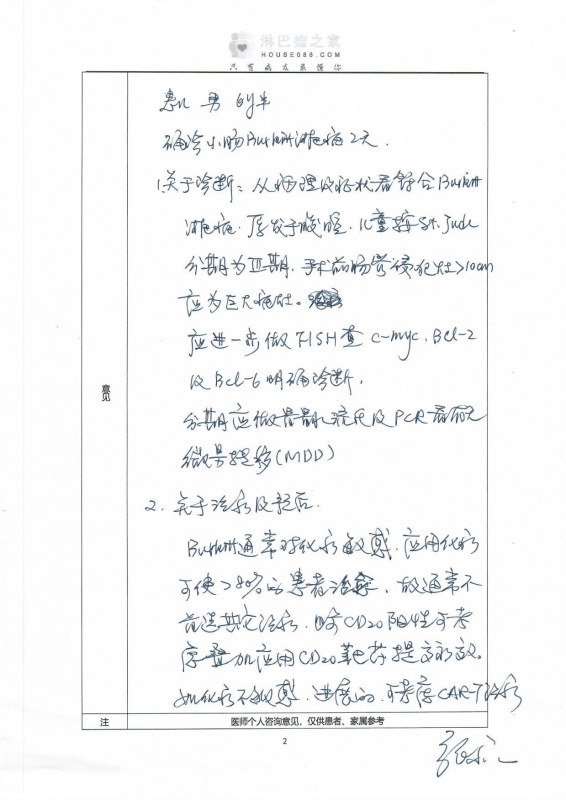 淋巴瘤之家
HOUSE086.COM
只有病友最懂你
患儿 男
确诊小肠Burkitt淋巴瘤2天.
1.关于诊断: 从病理及症状看符合Burkitt
淋巴瘤. 原发于腹腔. 儿童按St. Jude
分期为Ⅲ期. 手术前肠管侵犯灶>10cm
应为巨大瘤灶.
应进一步做FISH查 c-myc. Bcl-2
及Bcl-6明确诊断.
分期应做骨髓流式及PCR看有无
微量转移(MDD)
意见
2. 关于治疗及预后.
Burkitt通常对化疗敏感. 应用化疗
可使>80%的患者治愈. 故通常不
首选其它治疗. 因CD20阳性可考
虑叠加应用CD20靶向药提高疗效.
如化疗不敏感. 进展的. 可考虑CAR-T治疗
注
医师个人咨询意见，仅供患者、家属参考
2